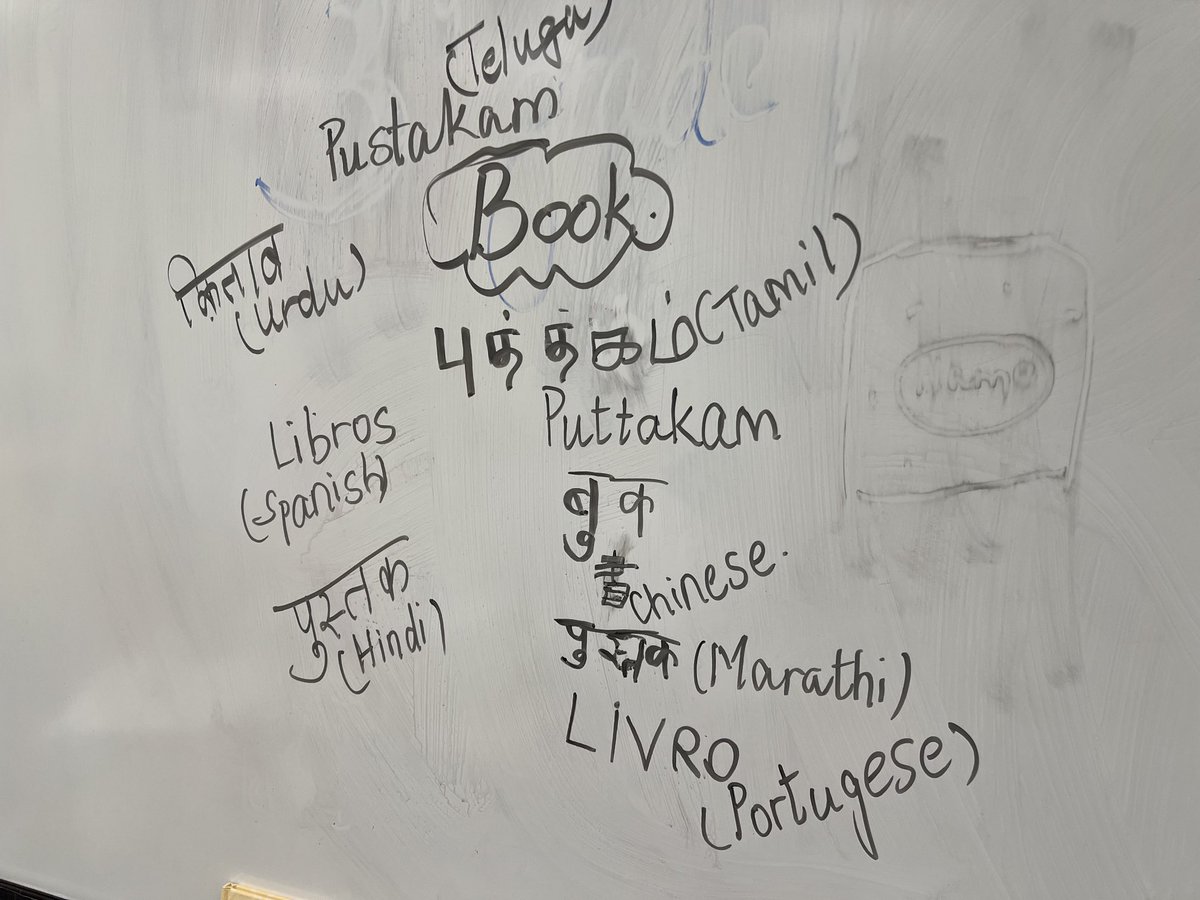 (Telugu)
Pustakam
Book.
किताब
(Urdu)
புத்தகம் (Tamil)
Puttakam
Libros
(Spanish)
बुक
書 Chinese.
पुस्तक
(Hindi)
पुस्तक (Marathi)
LIVRO
(Portugese)